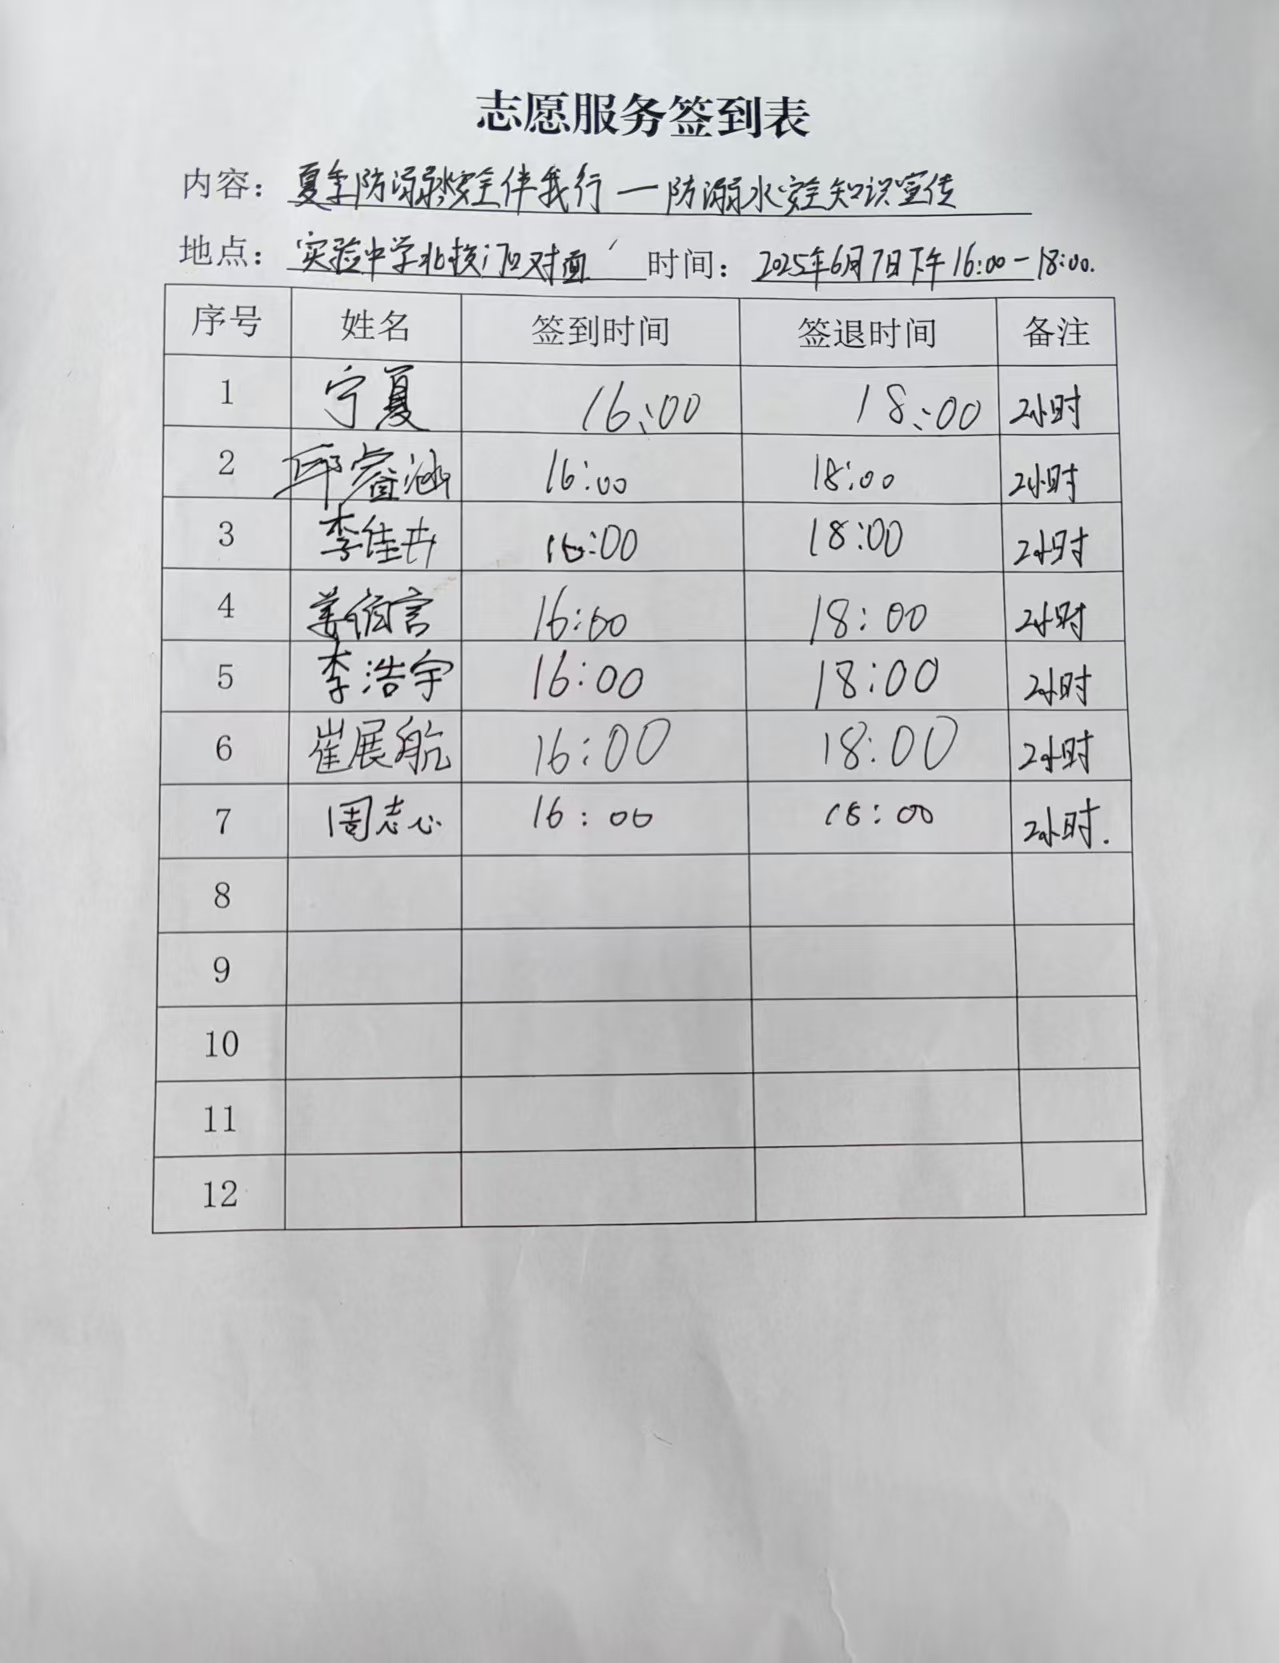 志愿服务签到表
内容：夏季防溺水安全伴我行一防溺水安全知识宣传
地点：实验中学北校门口对面 时间：2025年6月7日下午16:00-18:00.
序号 姓名 签到时间 签退时间 备注
1 宁夏 16:00 18:00 2小时
2 邱睿涵 16:00 18:00 2小时
3 李佳卉 16:00 18:00 2小时
4 姜伯言 16:00 18:00 2小时
5 李浩宇 16:00 18:00 2小时
6 崔展航 16:00 18:00 2小时
7 周志心 16:00 18:00 2小时.
8
9
10
11
12